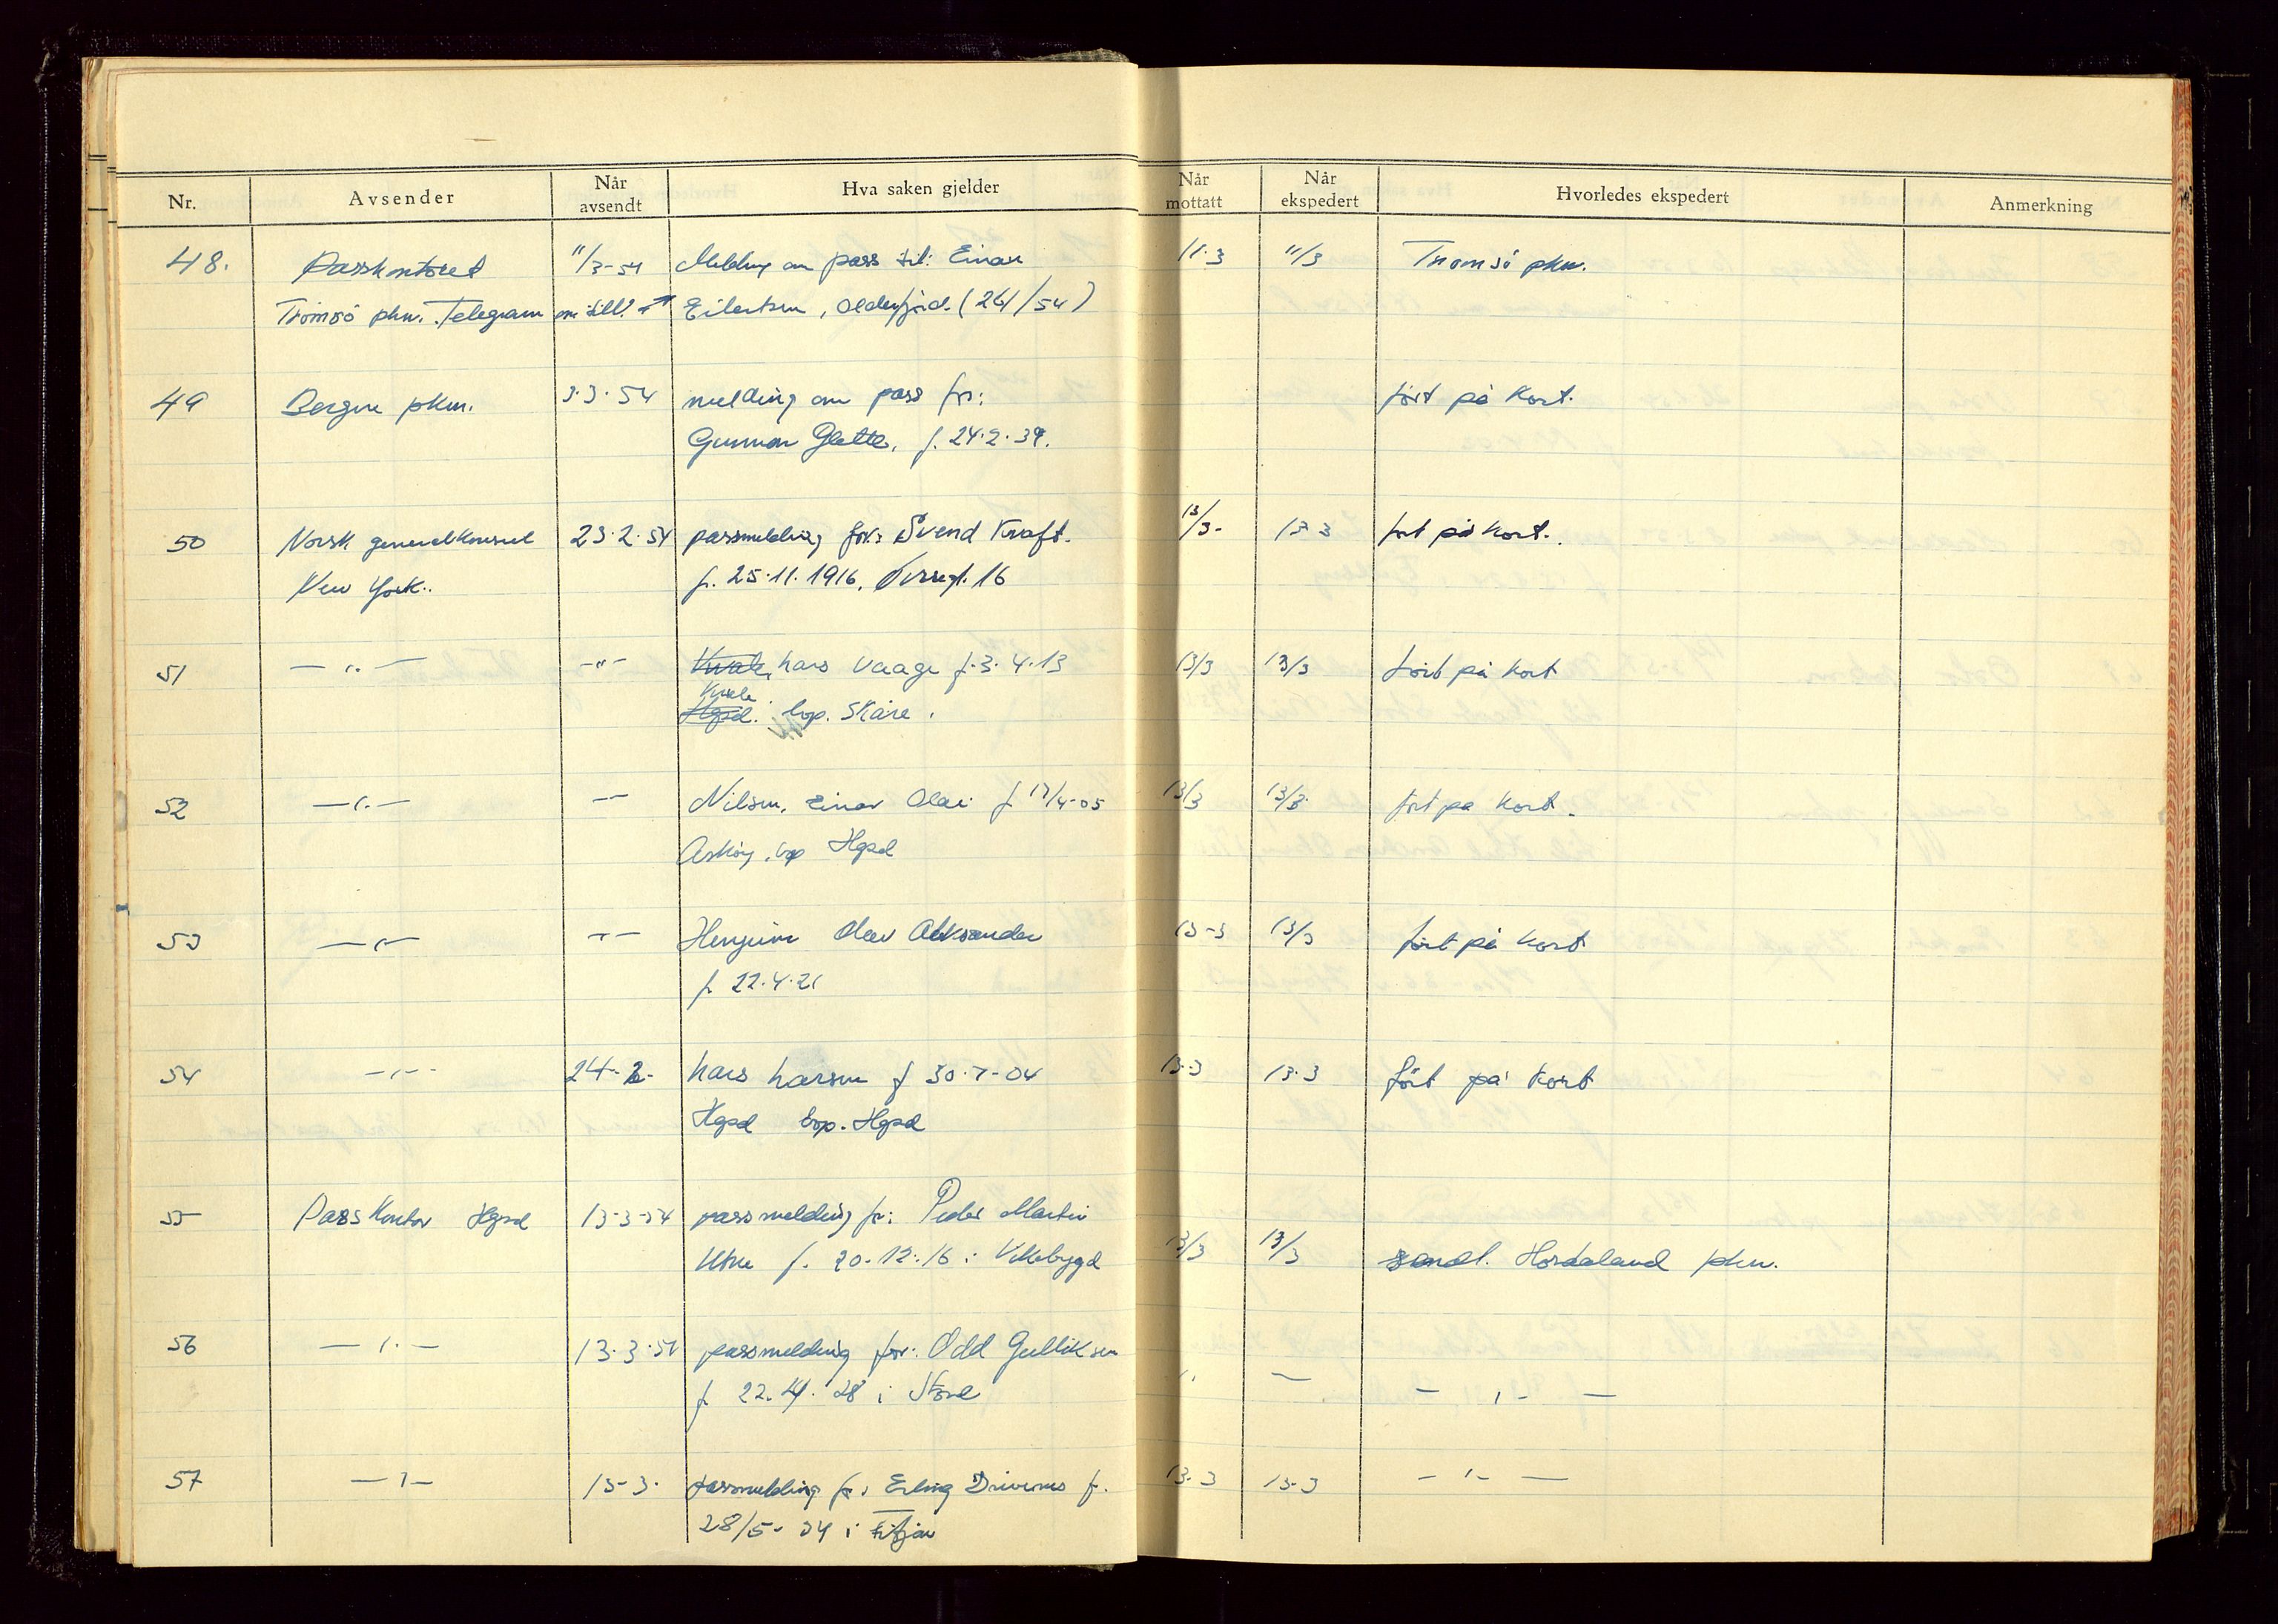 Nr. Avsender Når avsendt Hva saken gjelder Når mottatt Når ekspedert Hvorledes ekspedert Anmerkning
48. Passkontoret 11/3-54 Melding om pass til: Einar 11.3 11/3 Tromsö pkm.
Tromsö pkm. Telegram om till. Eilertsen, Olderfjord. (261/54)
49 Bergen pkm. 3.3.54 melding om pass for: fört på kort.
Gunnar Glette, f. 24.2.39.
50 Norsk generalkonsul 23.2.54 passmelding for: Svend Kraft. 13/3- 13 3 fört på kort.
New York.. f. 25.11.1916, 16
51 — " — — " — Lars Vaage f. 3.4.13 13/3 13/3 fört på kort
Kvale
bop. Skåre.
52 — " — — — Nilsen, Einar Olai f 17/4-05 13/3 13/3 fört på kort.
Asköy, bop Hgsd
53 — " — — — Olav Aleksander 13-3 13/3 fört på kort
f. 22.4.21
54 — " — 24-2- Lars Larsen f 30-7-04 13.3 13.3 fört på kort
Hgsd bop. Hgsd
55 Passkontor Hgsd 13-3-54 passmelding for: Peder Martin
f. 20.12.16 i Vikebygd 13/3 13/3 sendt. Hordaland pkm.
56 — " — 13.3.54 passmelding for: Odd Gulliksen
f. 22.4.28 i Stord " — — " —
57 — " — 13-3. passmelding for: Erling f. 13.3 13-3 — " —
28/5-34 i Fitjar